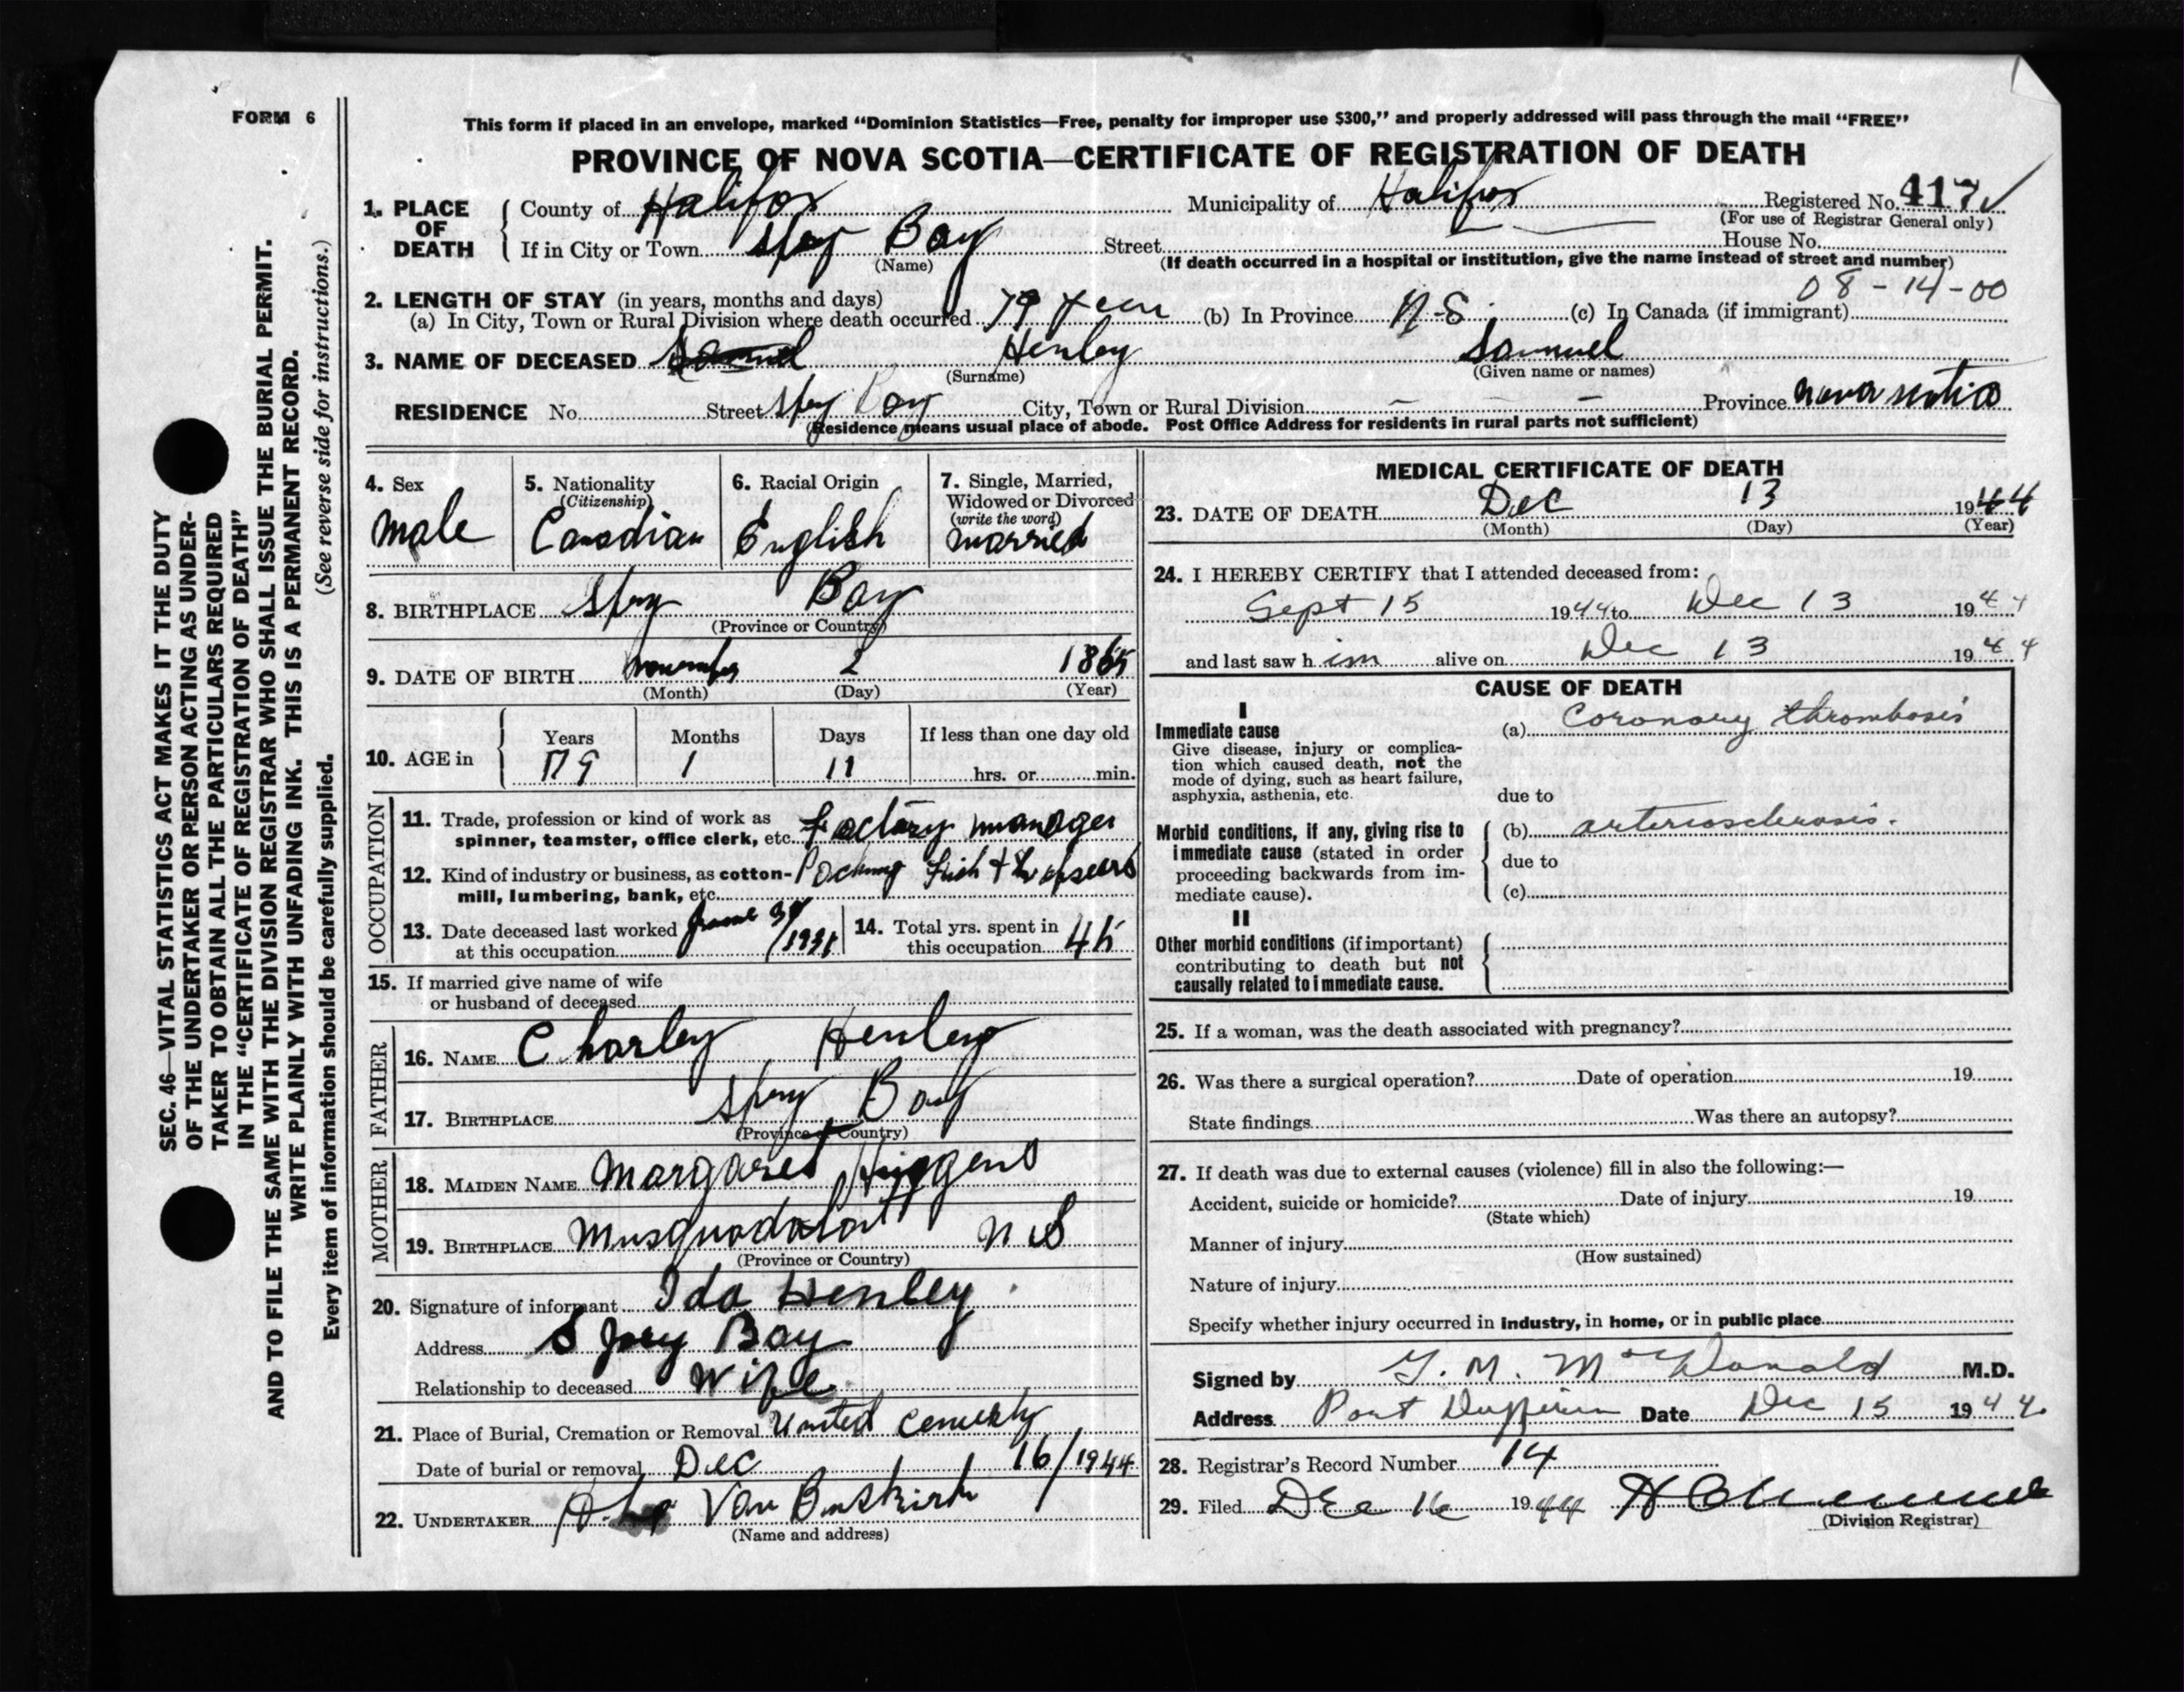 FORM 6
This form if placed in an envelope, marked "Dominion Statistics—Free, penalty for improper use $300," and properly addressed will pass through the mail "FREE"
PROVINCE OF NOVA SCOTIA—CERTIFICATE OF REGISTRATION OF DEATH
SEC. 46—VITAL STATISTICS ACT MAKES IT THE DUTY
OF THE UNDERTAKER OR PERSON ACTING AS UNDER-
TAKER TO OBTAIN ALL THE PARTICULARS REQUIRED
IN THE "CERTIFICATE OF REGISTRATION OF DEATH"
AND TO FILE THE SAME WITH THE DIVISION REGISTRAR WHO SHALL ISSUE THE BURIAL PERMIT.
WRITE PLAINLY WITH UNFADING INK. THIS IS A PERMANENT RECORD.
Every item of information should be carefully supplied. (See reverse side for instructions.)
1. PLACE OF DEATH County of Halifax Municipality of Halifax Registered No. 417
(For use of Registrar General only)
If in City or Town Spry Bay Street House No.
(Name) (If death occurred in a hospital or institution, give the name instead of street and number)
08-14-00
2. LENGTH OF STAY (in years, months and days)
(a) In City, Town or Rural Division where death occurred 79 years (b) In Province N-S. (c) In Canada (if immigrant)
3. NAME OF DECEASED Samuel Henley Samuel
(Surname) (Given name or names)
RESIDENCE No. Street Spry Bay City, Town or Rural Division – – – Province Nova Scotia
(Residence means usual place of abode. Post Office Address for residents in rural parts not sufficient)
4. Sex
male
5. Nationality
(Citizenship)
Canadian
6. Racial Origin
English
7. Single, Married,
Widowed or Divorced
(write the word)
married
8. BIRTHPLACE Spry Bay
(Province or Country)
9. DATE OF BIRTH November 2 1865
(Month) (Day) (Year)
10. AGE in Years Months Days If less than one day old
79 1 11 hrs. or min.
OCCUPATION
11. Trade, profession or kind of work as
spinner, teamster, office clerk, etc. factory manager
12. Kind of industry or business, as cotton-
mill, lumbering, bank, etc. Packing Fish +
13. Date deceased last worked
at this occupation
14. Total yrs. spent in
this occupation 45
15. If married give name of wife
or husband of deceased
FATHER
16. NAME Charley Henley
17. BIRTHPLACE Spry Bay
(Province or Country)
MOTHER
18. MAIDEN NAME Margaret Higgens
19. BIRTHPLACE Musquodoboit N S
(Province or Country)
20. Signature of informant Ida Henley
Address Spry Bay
Relationship to deceased Wife
21. Place of Burial, Cremation or Removal United Cemetery
Date of burial or removal Dec 16/1944
22. UNDERTAKER Van Buskirk
(Name and address)
MEDICAL CERTIFICATE OF DEATH
23. DATE OF DEATH Dec 13 1944
(Month) (Day) (Year)
24. I HEREBY CERTIFY that I attended deceased from:
Sept 15 1944 to Dec 13 1944
and last saw him alive on Dec 13 1944
CAUSE OF DEATH
I
Immediate cause
Give disease, injury or complica-
tion which caused death, not the
mode of dying, such as heart failure,
asphyxia, asthenia, etc.
(a) Coronary thrombosis
due to
Morbid conditions, if any, giving rise to
immediate cause (stated in order
proceeding backwards from im-
mediate cause).
(b) arteriosclerosis.
due to
(c)
II
Other morbid conditions (if important)
contributing to death but not
causally related to immediate cause.
25. If a woman, was the death associated with pregnancy?
26. Was there a surgical operation? Date of operation 19
State findings Was there an autopsy?
27. If death was due to external causes (violence) fill in also the following:—
Accident, suicide or homicide? Date of injury 19
(State which)
Manner of injury
(How sustained)
Nature of injury
Specify whether injury occurred in industry, in home, or in public place
Signed by G. M. McDonald M.D.
Address Port Dufferin Date Dec 15 1944.
28. Registrar's Record Number 14
29. Filed Dec 16 1944
(Division Registrar)